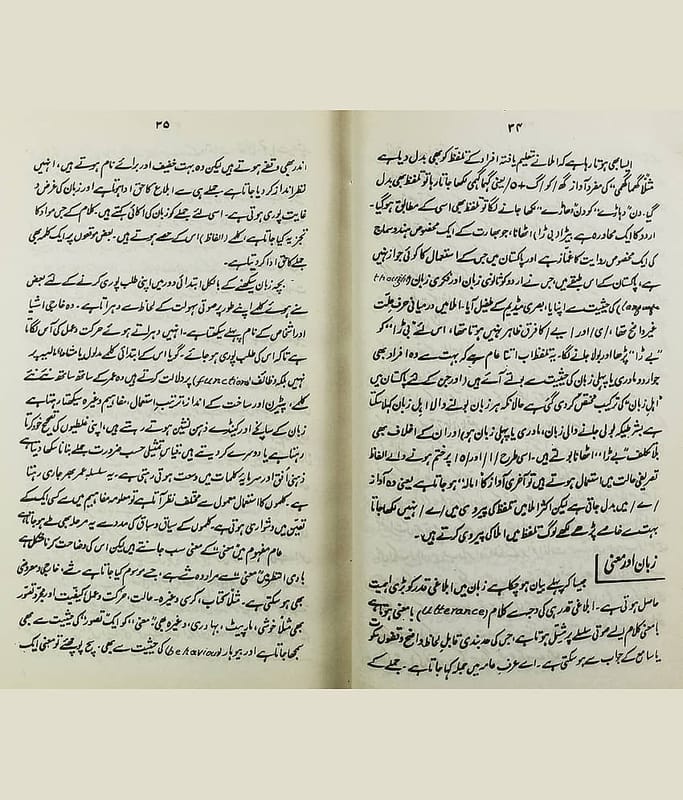 ۳۴
ایسا بھی ہوتا رہا ہے کہ املا نے تعلیم یافتہ افراد کے تلفظ کو بھی بدل دیا ہے
مثلاً گھما گھمی" کی مفرد آواز گھ / کو / گ + ہ / یعنی گہما گہمی لکھا جاتا رہا تو تلفظ بھی بدل
گیا۔ دن "دہاڑے" کو دن "دھاڑے" لکھا جانے لگا تو تلفظ بھی اسی کے مطابق ہو گیا۔
اردو کا ایک محاورہ ہے بیڑا (بی ڑا) اٹھانا، جو بھارت کے ایک مخصوص ہندو سماج
کی ایک مخصوص روایت کا غماز ہے اور پاکستان میں جس کے استعمال کا کوئی جواز نہیں
ہے، پاکستان کے اس طبقے میں جس نے اردو کو ثانوی زبان اور فکری زبان (thought
کی حیثیت سے اپنایا، بصری میڈیم کے طفیل آیا۔ املا میں درمیانی حرف علّت
غیر واضح تھا، /ی/ اور /ے/ کا فرق ظاہر نہیں ہوتا تھا، اس لئے "بی ڑا" کو
"بے ڑا" پڑھا اور بولا جانے لگا۔ یہ تلفظ اب اتنا عام ہے کہ بہت سے وہ افراد بھی
جو اردو مادری یا پہلی زبان کی حیثیت سے بولتے آئے ہیں اور جن کے لئے پاکستان میں
"اہل زبان" کی ترکیب مختص کر دی گئی ہے حالانکہ ہر زبان بولنے والا اہل زبان کہلا سکتا
ہے بشرطیکہ بولی جانے والی زبان، مادری یا پہلی زبان ہو، اور ان کے اخلاف بھی
بلا تکلف "بے ڑا" اٹھانا بولتے ہیں۔ اسی طرح /ا/ اور /ہ/ پر ختم ہونے والے الفاظ
تصریفی حالت میں استعمال ہوتے ہیں تو آخری آواز کا "امالہ" ہو جاتا ہے یعنی وہ آواز
/ے/ میں بدل جاتی ہے لیکن اکثر املا میں تلفظ کی پیروی میں /ے/ نہیں لکھا جاتا
بہت سے خاصے پڑھے لکھے لوگ تلفظ میں املا کی پیروی کرتے ہیں۔
زبان اور معنی
جیسا کہ پہلے بیان ہو چکا ہے زبان میں ابلاغی قدر کو بڑی اہمیت
حاصل ہوتی ہے۔ ابلاغی قدر ہی کی وجہ سے کلام (utterance) با معنی ہوتا ہے
با معنی کلام ایسے صوتی سلسلے پر مشتمل ہوتا ہے، جس کی حد بندی قابل لحاظ واضح وقفوں، سکوت
یا سامع کے جواب سے ہو سکتی ہے۔ اسے عرف عام میں جملہ کہا جاتا ہے۔ جملے کے
۳۵
اندر بھی وقفے ہوتے ہیں لیکن وہ بہت خفیف اور برائے نام ہوتے ہیں، انہیں
نظر انداز کر دیا جاتا ہے جملے ہی سے ابلاغ کا حق ادا ہوتا ہے اور زبان کی غرض و
غایت پوری ہوتی ہے۔ اسی لئے جملے کو زبان کی اکائی کہتے ہیں۔ کلام کے جس مواد کا
تجزیہ کیا جاتا ہے، کلمے (الفاظ) اس کے حصے ہوتے ہیں۔ بعض موقعوں پر ایک کلمہ بھی
جملے کا حق ادا کر دیتا ہے۔
بچہ زبان سیکھنے کے بالکل ابتدائی دور میں اپنی طلب پوری کرنے کے لئے بعض
سنے ہوئے کلمے اپنے طور پر صوتی سہولت کے لحاظ سے دہراتا ہے۔ وہ خارجی اشیا
اور اشخاص کے نام پہلے سیکھتا ہے۔ انہیں دہراتے ہوئے حرکت و عمل کی آس لگاتا
ہے تاکہ اس کی طلب پوری ہو جائے۔ گویا اس کے ابتدائی کلمے مدلول یا مشار الیہ پر
نہیں بلکہ وظائف (function) پر دلالت کرتے ہیں وہ عمر کے ساتھ ساتھ نئے نئے
کلمے، پیٹرن اور ساخت کے انداز، ترتیب استعمال، مفاہیم وغیرہ سیکھتا رہتا ہے
زبان کے سانچے اور کینڈے ذہن نشین ہوتے رہتے ہیں، اپنی غلطیوں کی تصحیح خود کرتا
رہتا ہے یا دوسرے کر دیتے ہیں۔ قیاس تمثیلی حسب ضرورت جملے بنانا سکھا دیتا ہے
ذہنی اُفق اور سرمایہ کلمات میں وسعت ہوتی رہتی ہے۔ یہ سلسلہ عمر بھر جاری رہتا
ہے۔ کلموں کا استعمال معمول سے مختلف نظر آتا ہے تو معلومہ مفاہیم میں سے کسی ایک کے
تعیّن میں دشواری ہوتی ہے۔ کلموں کے سیاق و سباق کی مدد سے یہ مرحلہ بھی طے ہو جاتا ہے
عام مفہوم میں "معنی" کے معنی سب جانتے ہیں لیکن اس کی وضاحت کرنا مشکل ہے
بادی النظر میں "معنی" سے مراد وہ شے ہے، جسے موسوم کیا جاتا ہے شے، خارجی و معروضی
بھی ہو سکتی ہے۔ مثلاً کتاب، کرسی وغیرہ۔ حالت، حرکت و عمل، کیفیت اور مجرد تصور
بھی مثلاً خوشی، مار پیٹ، بہادری، وغیرہ بھی "معنی" کو ایک "تصور" کی حیثیت سے بھی
سمجھا جاتا ہے اور بیوہار (behaviour) کی حیثیت سے بھی۔ سچ پوچھئے تو معنی ایک